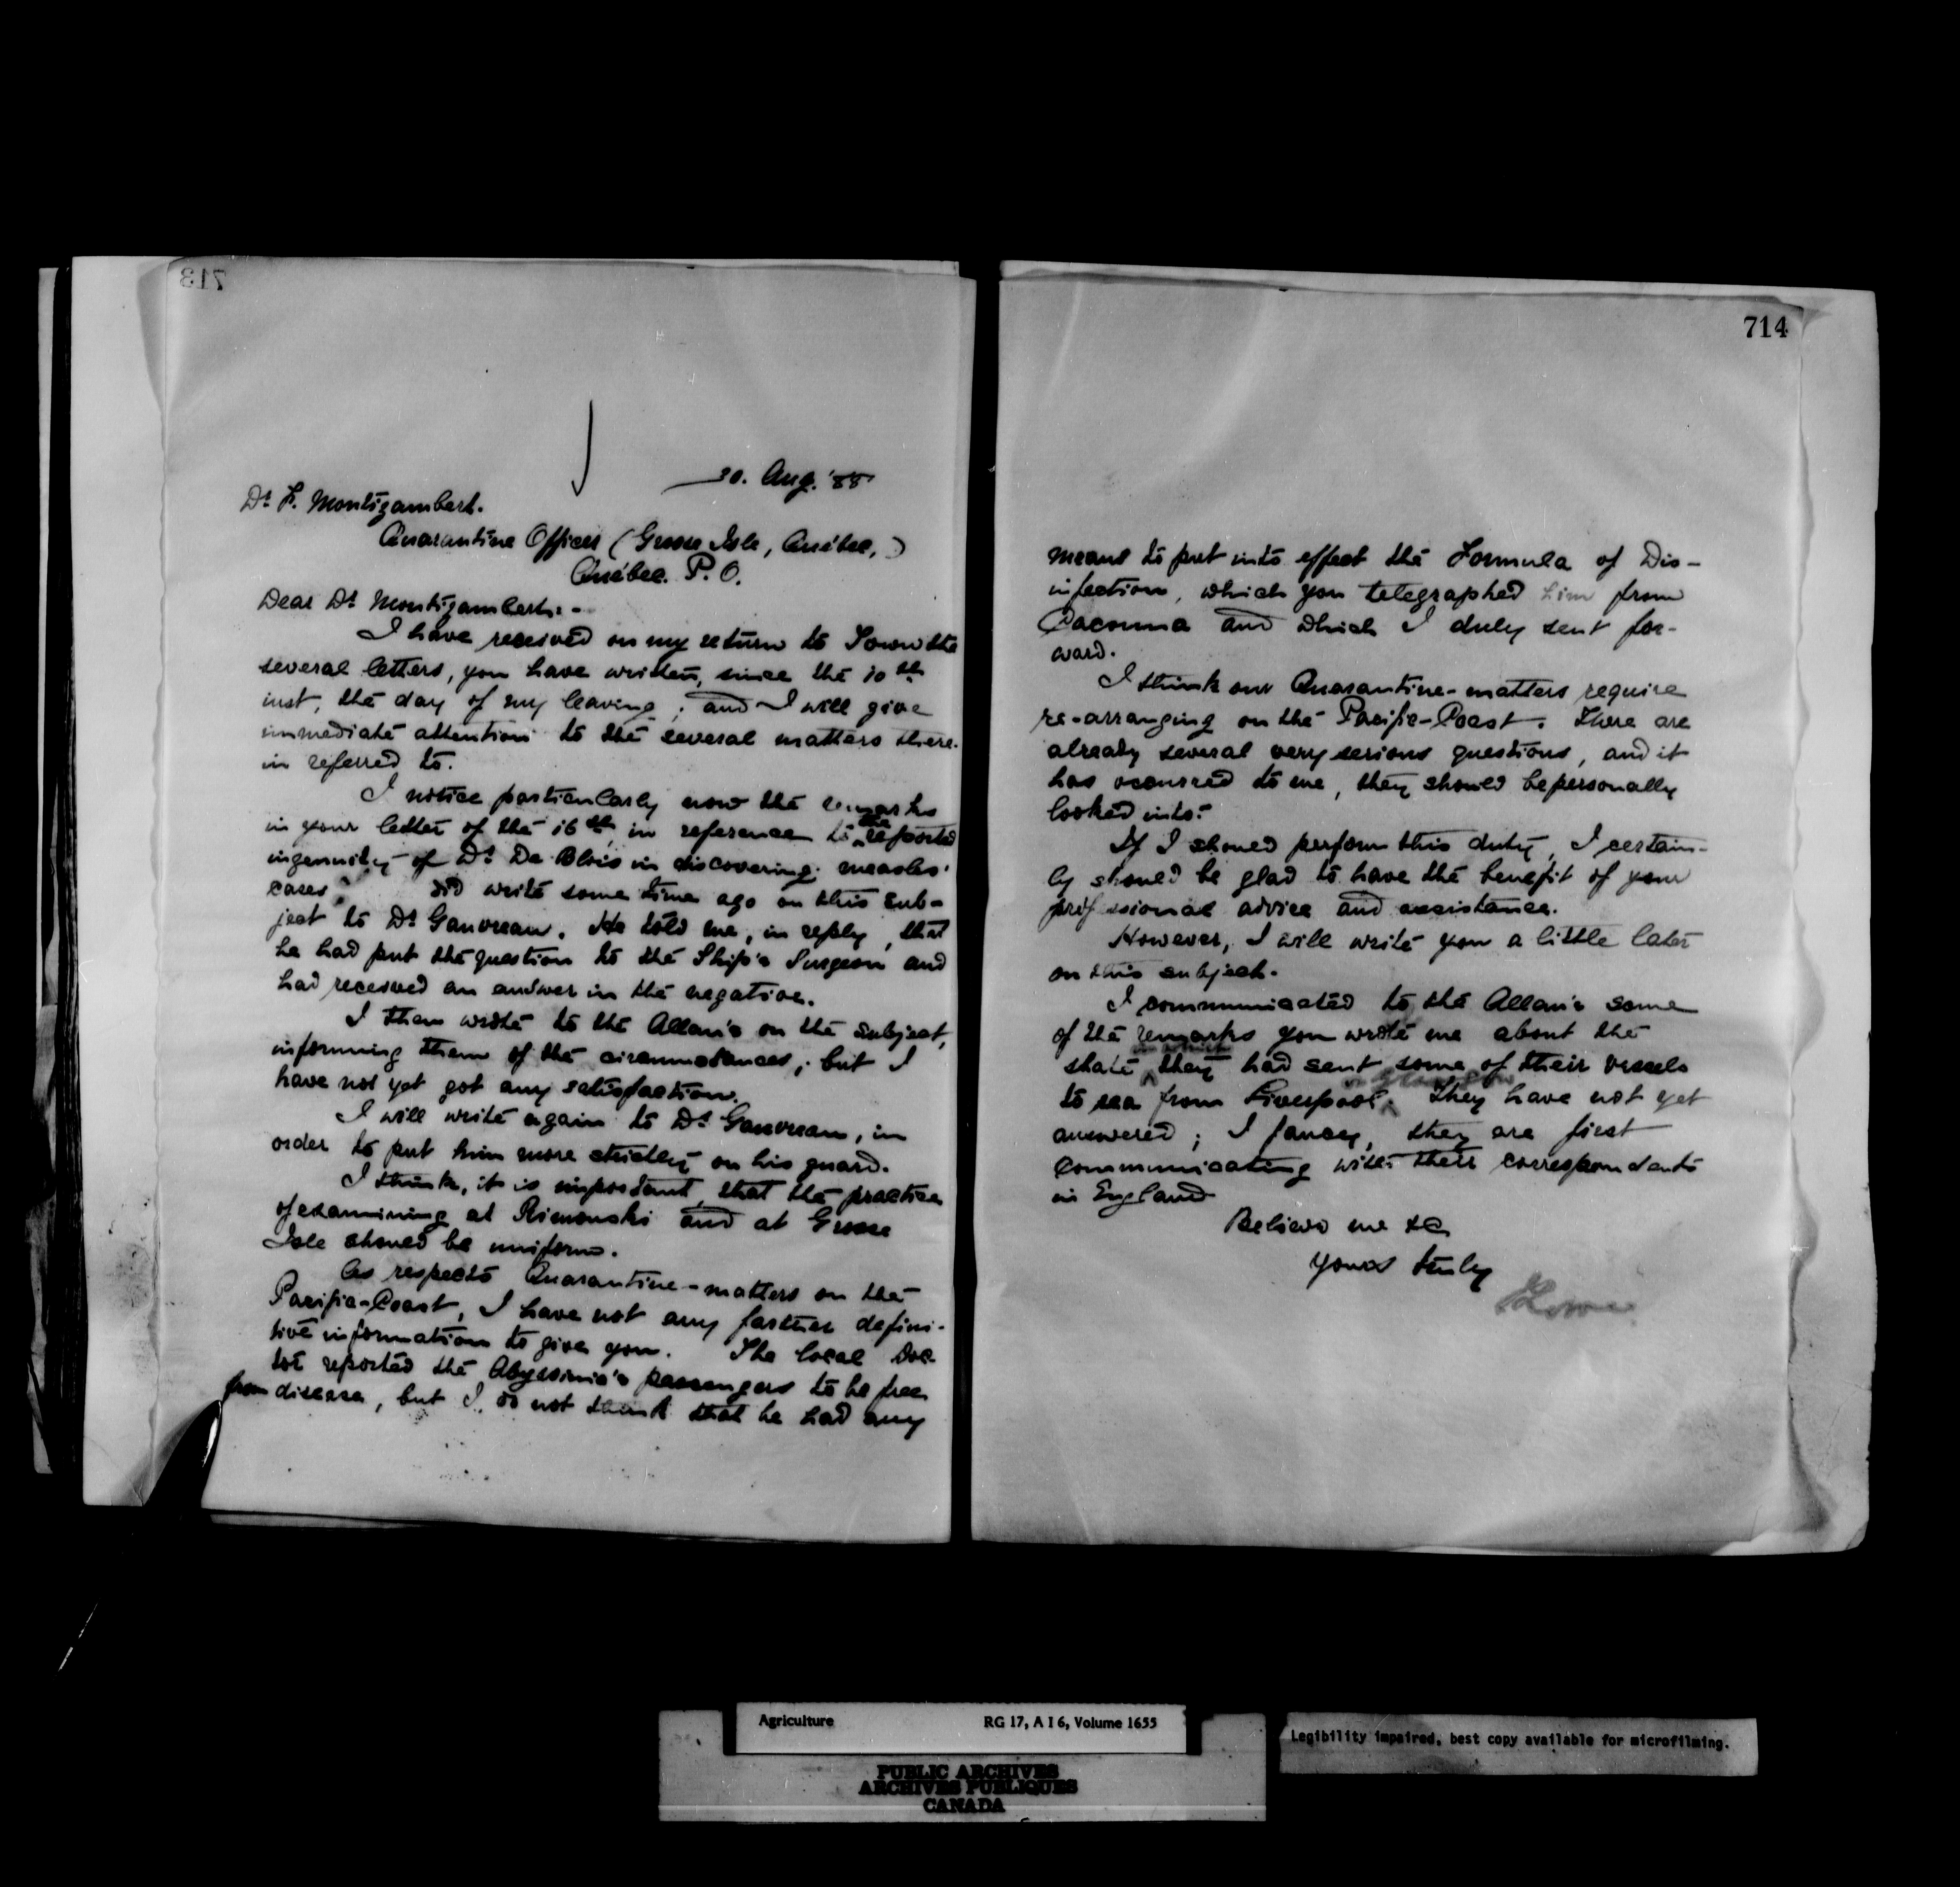 713
30. Aug. '88
Dr. F. Montizambert.
Quarantine Officer (Grosse Isle, Québec,)
Québec. P. O.
Dear Dr. Montizambert:-
I have received on my return to Town the
several letters, you have written, since the 10th
inst, the day of my leaving; and I will give
immediate attention to the several matters there-
in referred to.
I notice particularly now the remarks
in your letter of the 16th in reference to the reported
ingenuity of Dr. De Blois in discovering measles'
cases. did write some time ago on this sub-
ject to Dr. Gauvreau. He told me, in reply, that
he had put the question to the Ship's Surgeon and
had received an answer in the negative.
I then wrote to the Allan's on the subject,
informing them of the circumstances; but I
have not yet got any satisfaction.
I will write again to Dr. Gauvreau, in
order to put him more strictly on his guard.
I think, it is important, that the practice
of examining at Rimouski and at Grosse
Isle should be uniform.
As respects Quarantine-matters on the
Pacific-Coast, I have not any farther defini-
tive information to give you. The local Doc-
tor reported the Abyssinia's passengers to be free
from disease, but I do not think that he had any
714
means to put into effect the Formula of Dis-
infection, which you telegraphed him from
Cacouna and which I duly sent for-
ward.
I think our Quarantine-matters require
re-arranging on the Pacific-Coast. There are
already several very serious questions, and it
has occurred to me, they should be personally
looked into.
If I should perform this duty, I certain-
ly should be glad to have the benefit of your
professional advice and assistance.
However, I will write you a little later
on this subject.
I communicated to the Allan's some
of the remarks you wrote me about the
state in which they had sent some of their vessels
to sea from Liverpool or Glasgow. They have not yet
answered; I fancy, they are first
communicating with their correspondents
in England
Believe me &c
Yours truly
JLowe
Agriculture RG 17, A I 6, Volume 1655
PUBLIC ARCHIVES
ARCHIVES PUBLIQUES
CANADA
Legibility impaired, best copy available for microfilming.